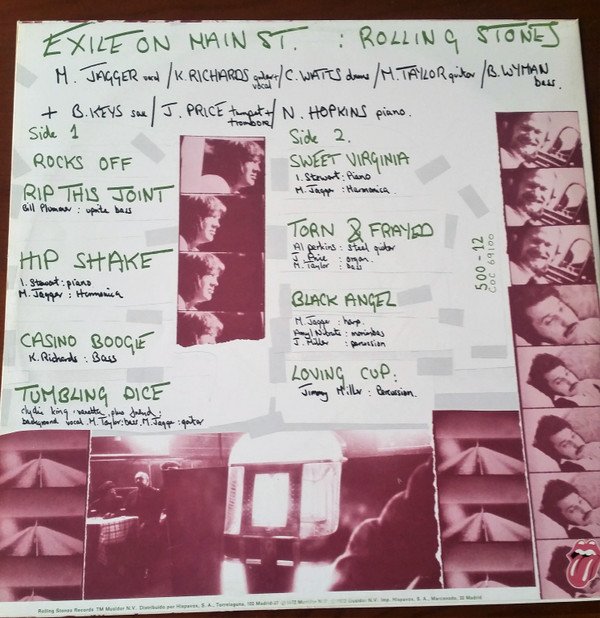 EXILE ON MAIN ST. : ROLLING STONES
M. JAGGER vocal / K. RICHARDS guitar + vocal / C. WATTS drums / M. TAYLOR guitar / B. WYMAN bass.
+ B. KEYS sax / J. PRICE trumpet + trombone / N. HOPKINS piano.
Side 1
ROCKS OFF
RIP THIS JOINT
Bill Plummer : uprite bass
HIP SHAKE
I. Stewart : piano
M. Jagger : Harmonica
CASINO BOOGIE
K. Richards : Bass
TUMBLING DICE
clydie king : vanetta plus friend :
background vocal. M. Taylor : bass. M. Jagger : guitar
Side 2.
SWEET VIRGINIA
I. Stewart : Piano
M. Jagger : Harmonica.
TORN & FRAYED
Al perkins : steel guitar
J. Price : organ.
M. Taylor : bass
BLACK ANGEL
M. Jagger : harp.
Amyl Nitrate : marimbas
J. Miller : percussion
LOVING CUP.
Jimmy Miller : Percussion.
500-12
COC 69100
Rolling Stones Records TM Musidor N.V. Distribuido por Hispavox, S. A., Torrelaguna, 102 Madrid-27 Musidor N.V. Imp. Hispavox, S. A., Madrid